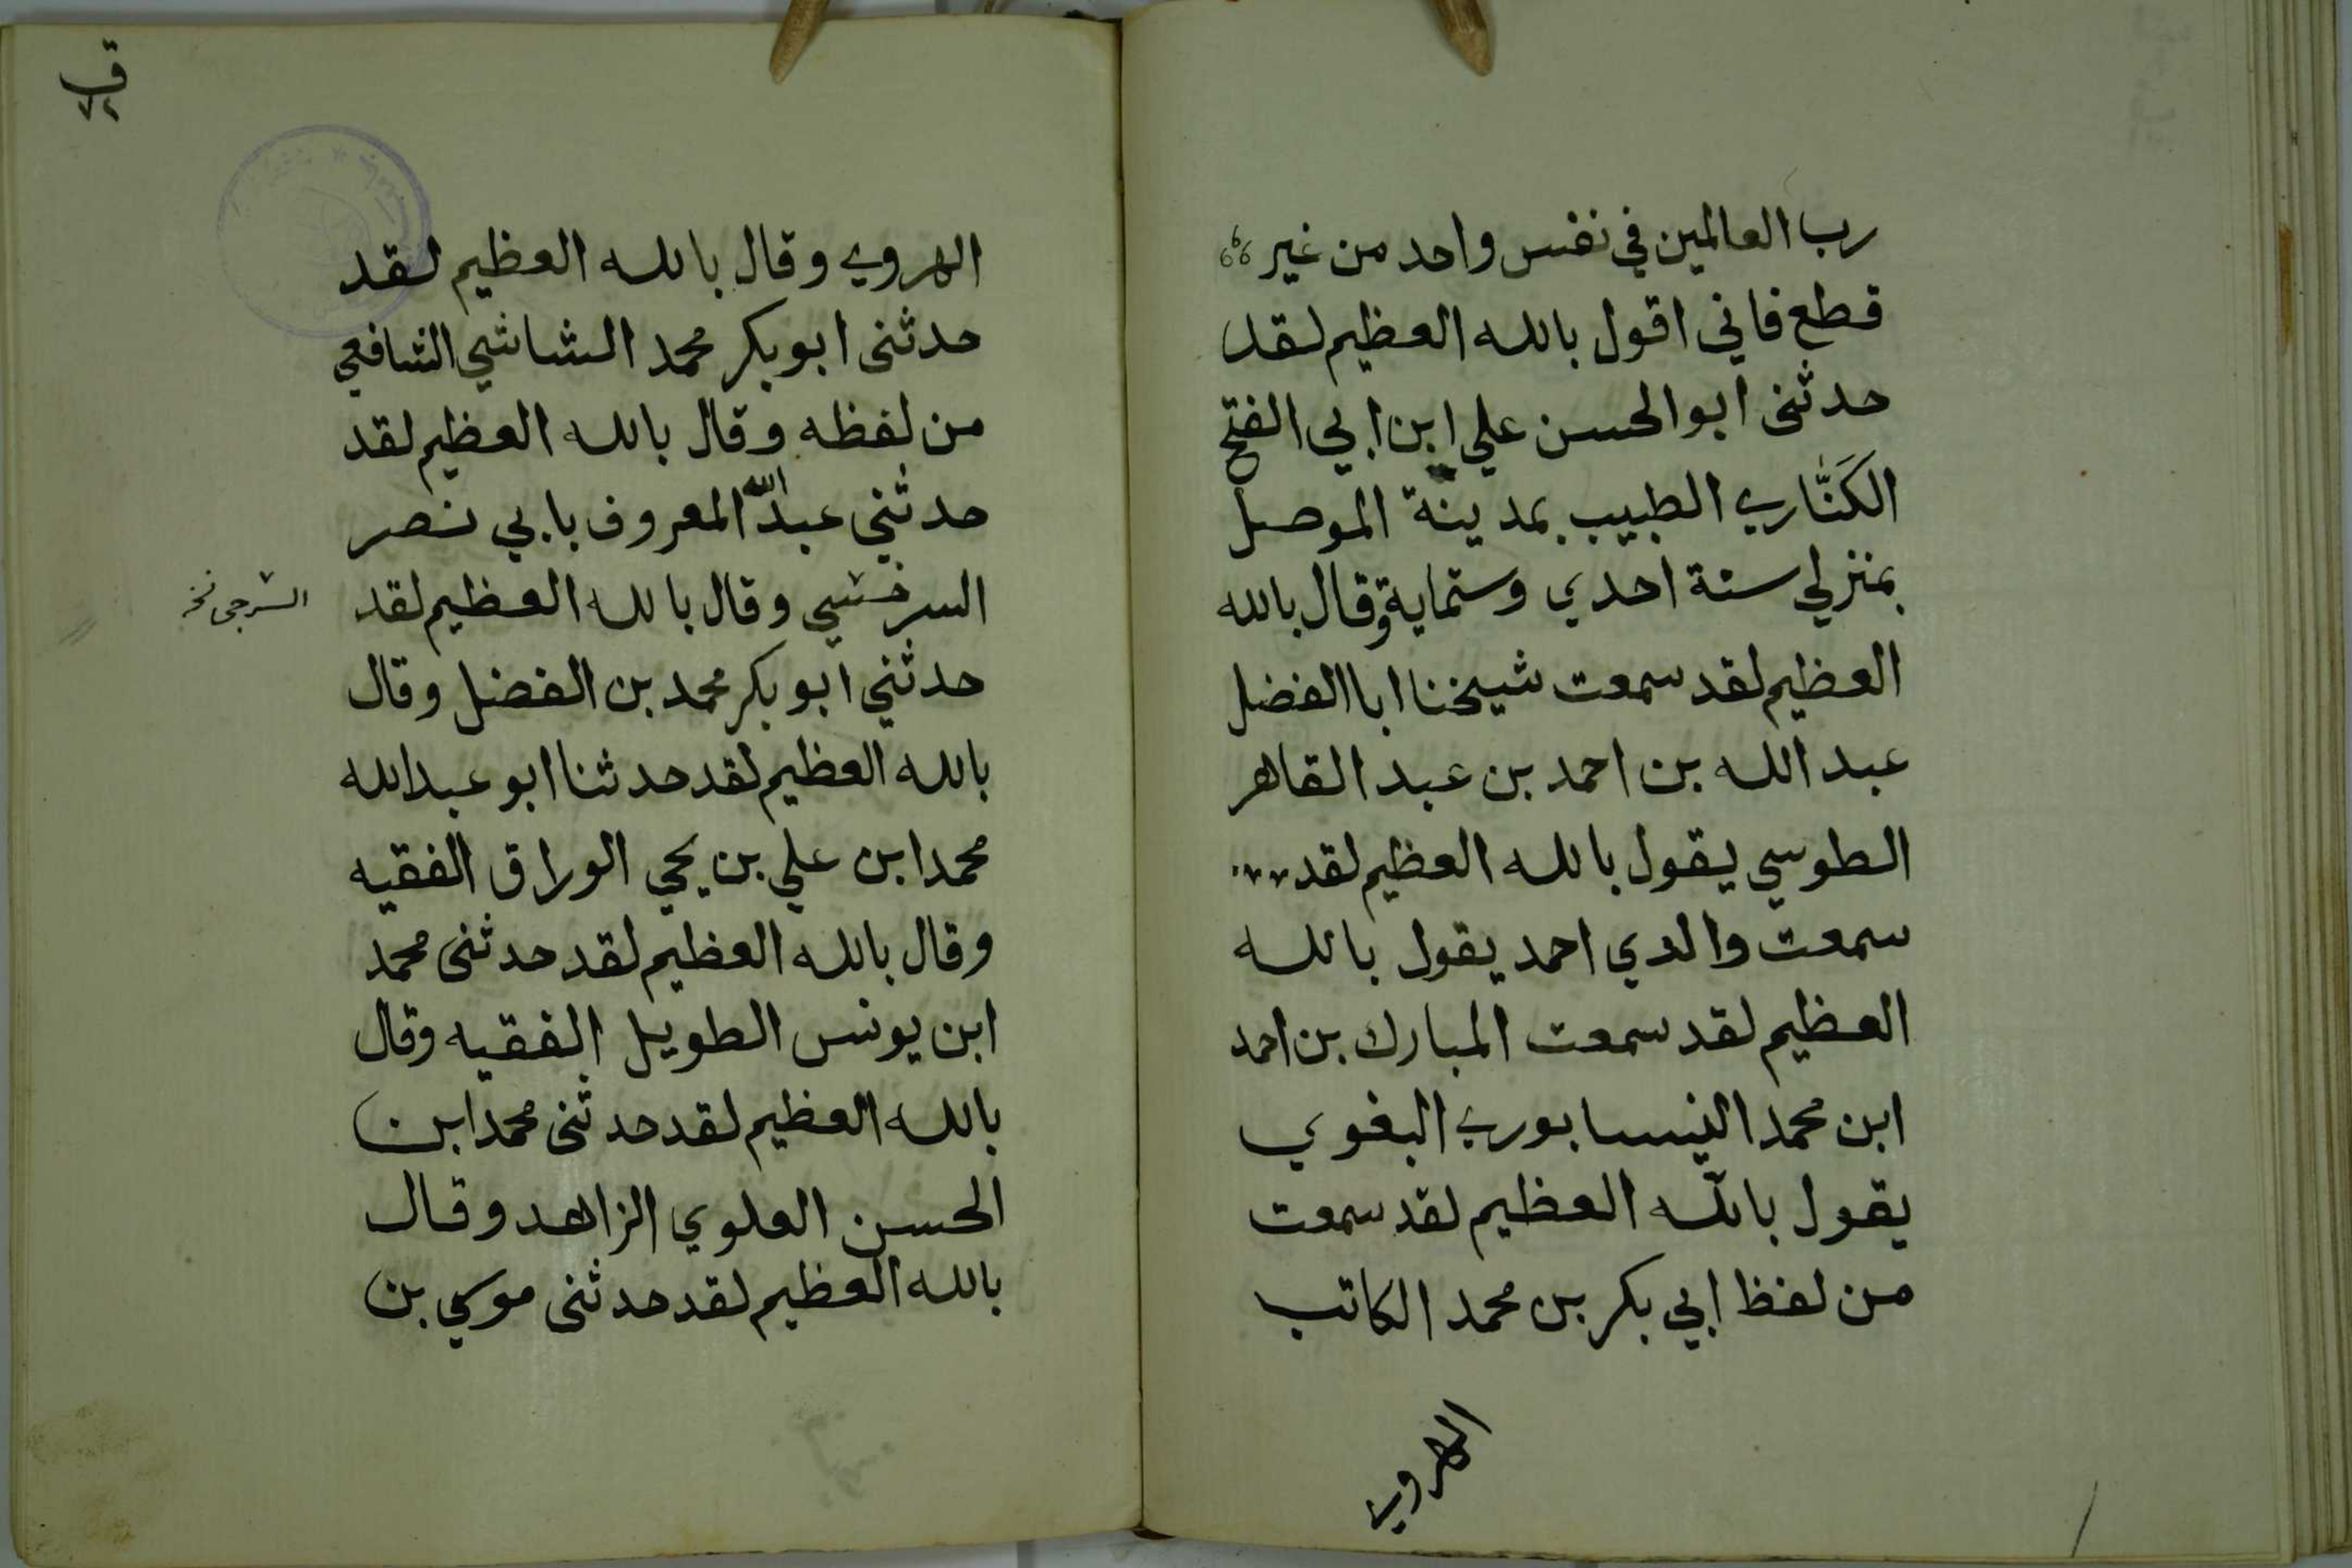 رب العالمين في نفس واحد من غير
قطع فاني اقول بالله العظيم لقد
حدثنى ابو الحسن علي ابن ابي الفتح
الكَنَّاري الطبيب بمدينة الموصل
بمنزلي سنة احدي وستماية وقال بالله
العظيم لقد سمعت شيخنا ابا الفضل
عبد الله بن احمد بن عبد القاهر
الطوسي يقول بالله العظيم لقد
سمعت والدي احمد يقول بالله
العظيم لقد سمعت المبارك بن احمد
ابن محمد النيسابوري البغوي
يقول بالله العظيم لقد سمعت
من لفظ ابي بكر بن محمد الكاتب
الهروي
الهروي وقال بالله العظيم لقد
حدثنى ابو بكر محمد الشاشي الشافعي
من لفظه وقال بالله العظيم لقد
حدثني عبد الله المعروف بابي نصر
السرخسي وقال بالله العظيم لقد
السرجى نخ
حدثني ابو بكر محمد بن الفضل وقال
بالله العظيم لقد حدثنا ابو عبدالله
محمد ابن علي بن يحي الوراق الفقيه
وقال بالله العظيم لقد حدثنى محمد
ابن يونس الطويل الفقيه وقال
بالله العظيم لقد حدثنى محمد ابن
الحسن العلوي الزاهد وقال
بالله العظيم لقد حدثنى موسي بن